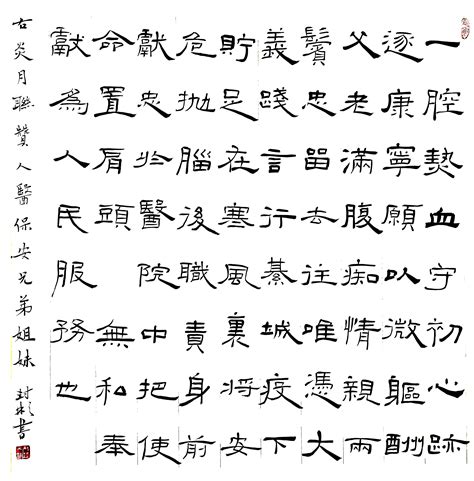 一腔熱血守初心跡
逐康寧願以微軀酬
父老滿腹痴情親兩
鬢忠留去往唯憑大
義踐言行綦城疫下
貯足在寒風裏將安
危拋腦後職責身前
獻忠於醫院中把使
命置肩頭無和奉
獻為人民服務也
古炎月聯贊人醫保安兄弟姐妹 封彬書